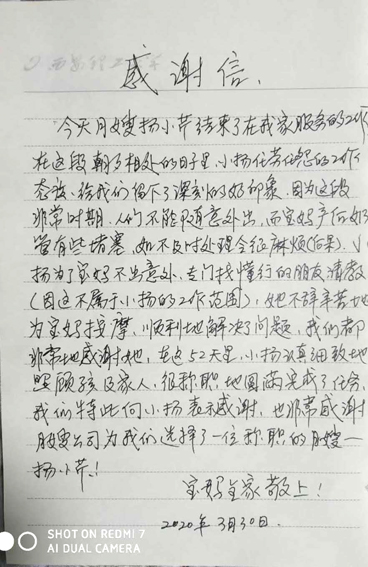 感谢信
今天月嫂扬小芹结束了在我家服务的工作
在这段朝夕相处的日子里,小扬任劳任怨的工作
态度,给我们留下了深刻的好印象。因为这段
非常时期,人们不能随意外出,而宝妈产后奶
管有些堵塞,如不及时处理会很麻烦(后果)。小
扬为了宝妈不出意外,专门找懂行的朋友请教
(因这不属于小扬的工作范围),她不辞辛苦地
为宝妈按摩,顺利地解决了问题,我们都
非常地感谢她,在这52天里,小扬认真细致地
照顾孩及家人,很称职地圆满完成了任务,
我们特此向小扬表示感谢,也非常感谢
月嫂公司为我们选择了一位称职的月嫂—
扬小芹!
宝妈全家敬上!
2020年3月30日.
SHOT ON REDMI 7
AI DUAL CAMERA